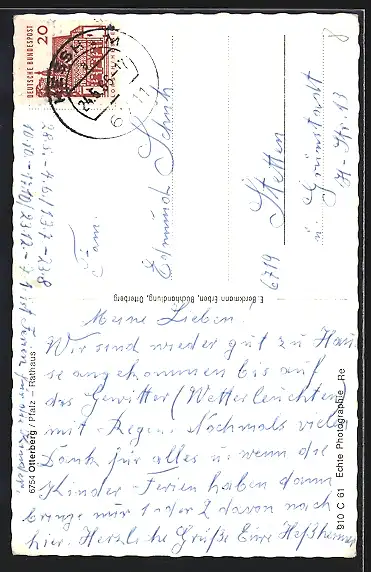 DEUTSCHE BUNDESPOST
20
Fam.
Edmund Schuh
6719 Stetten
ü. Grünstadt
H-Str. 13
8
E. Berckmann Erben, Buchhandlung, Otterberg
6754 Otterberg / Pfalz – Rathaus
910 C 61 Echte Photographie Re
Meine Lieben.
Wir sind wieder gut zu Hau
se angekommen bis auf
das Gewitter (Wetterleuchten)
mit Regen. Nochmals vielen
Dank für alles u. wenn die
Kinder Ferien haben dann
bringe mir 1 oder 2 davon nach
hier. Herzliche Grüße Eure Heßheimer